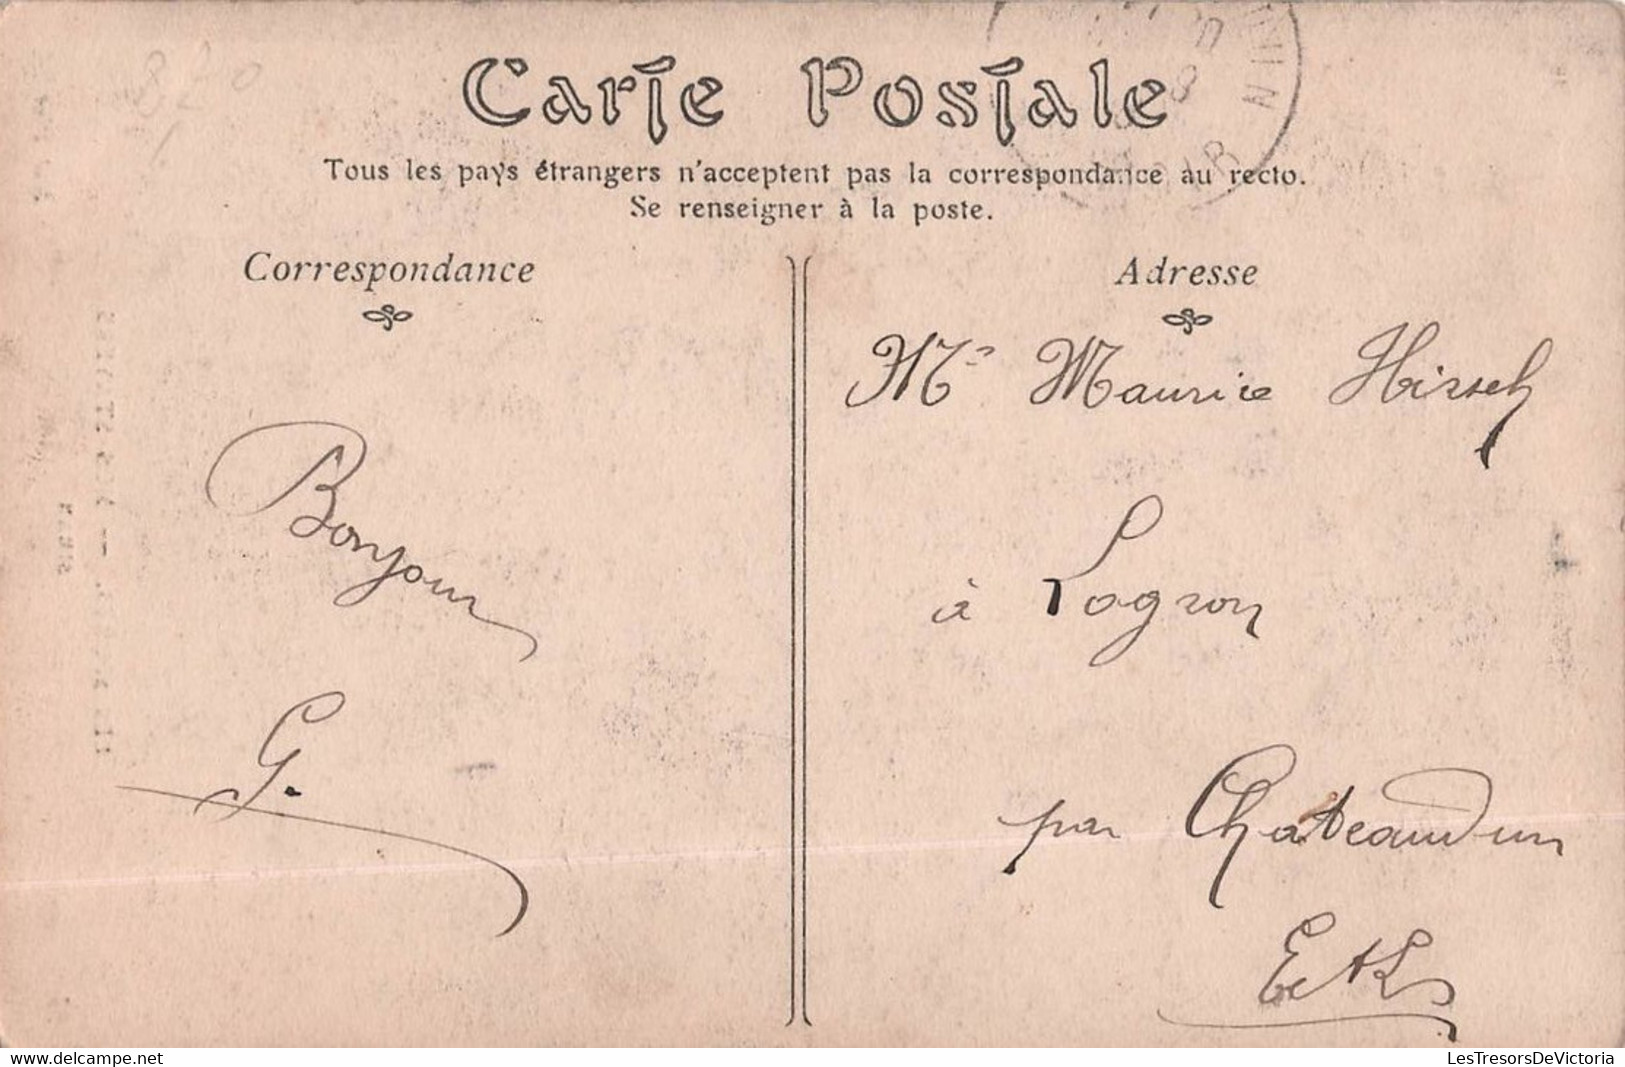 Carte Postale
Tous les pays étrangers n'acceptent pas la correspondance au recto.
Se renseigner à la poste.
Correspondance
Adresse
Mr Maurice Hirsch
à Logron
par Chateaudun
E et L
Bonjour
G.
delcampe.net
LesTresorsDeVictoria